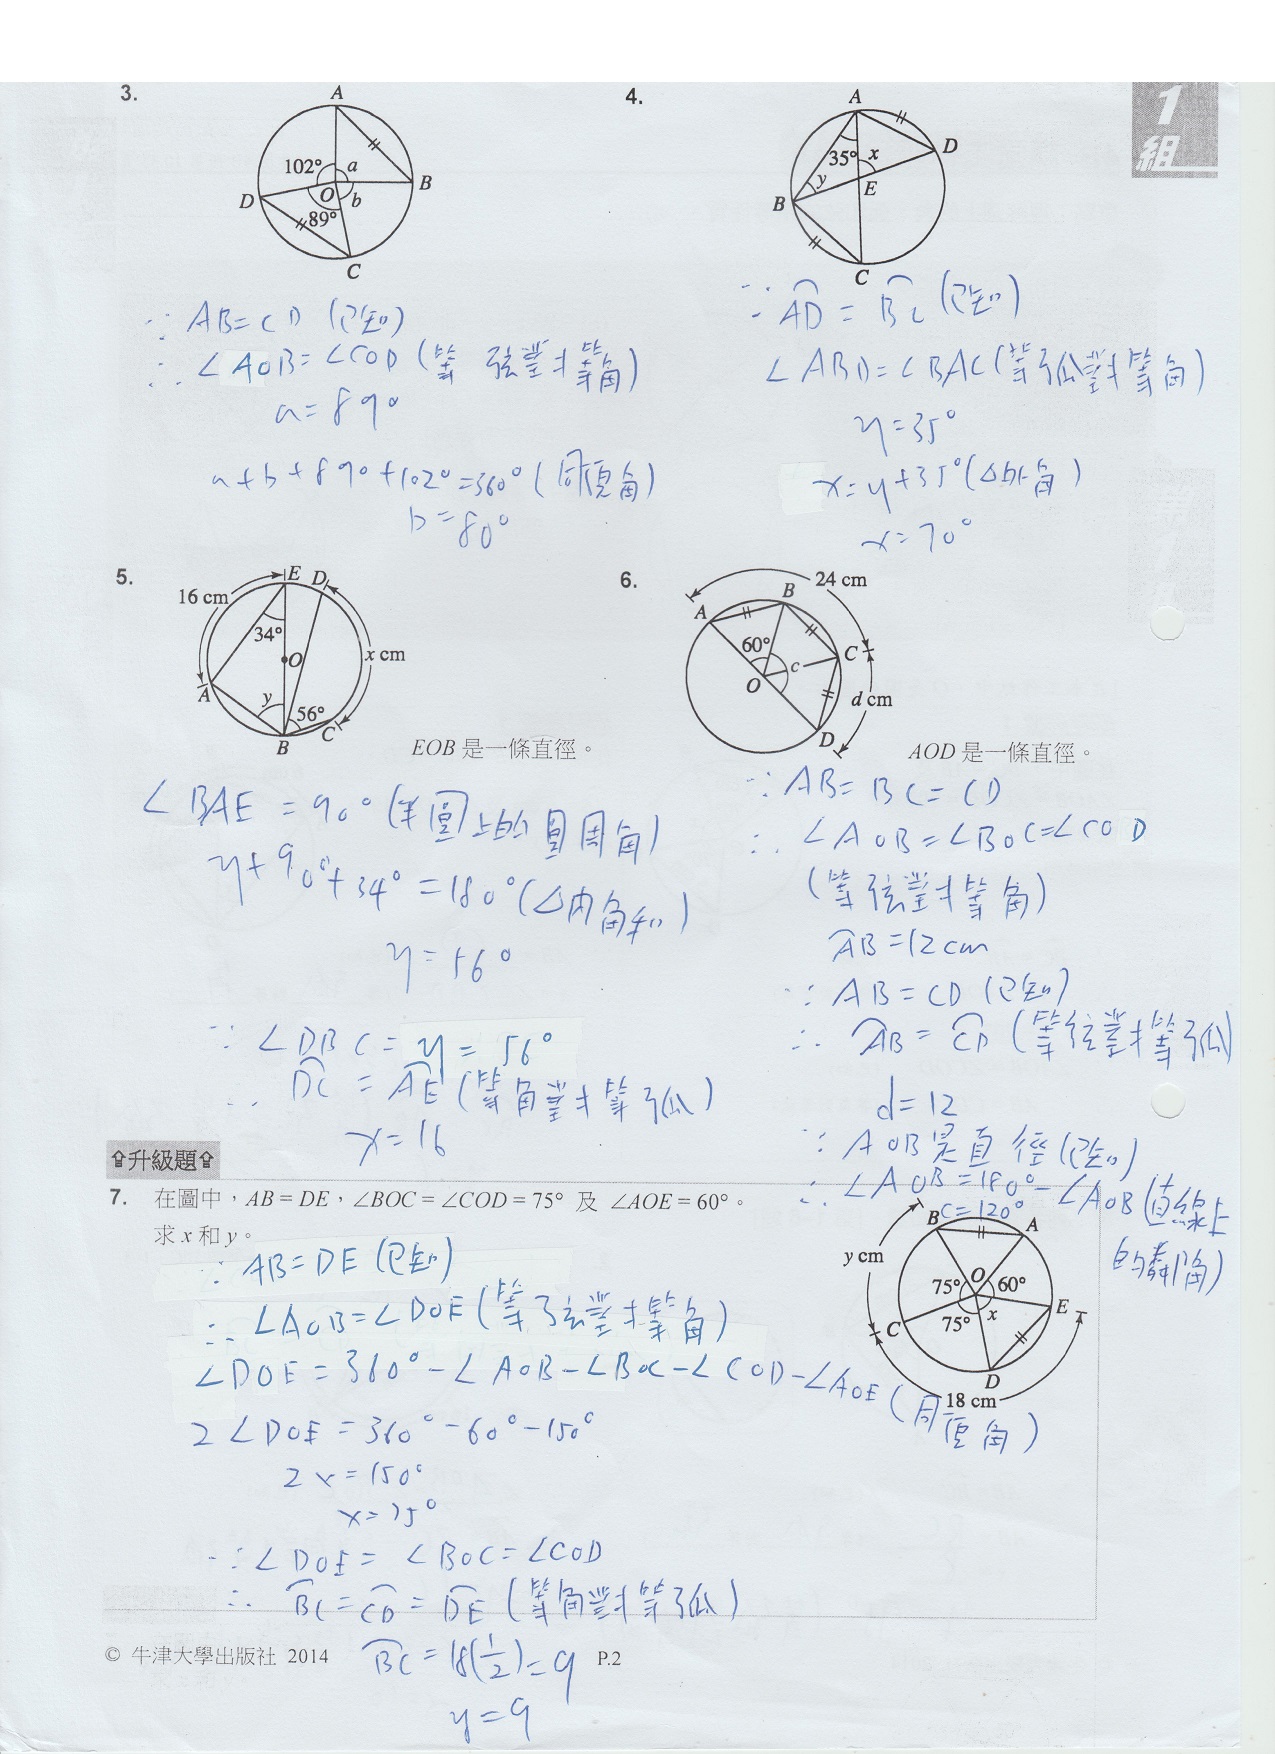 3.
A
102°
a
B
O
b
D
89°
C
∵ AB=CD (已知)
∴ ∠AOB=∠COD (等弦對等角)
a=89°
a+b+89°+102°=360° (同頂角)
b=80°
4.
A
D
35°
x
y
E
B
C
1
組
∵ A͡D = B͡C (已知)
∠ABD=∠BAC (等弧對等角)
y=35°
x=y+35° (△外角)
x=70°
5.
E D
16 cm
34°
O
x cm
A
y
56°
C
B
EOB 是一條直徑。
∠BAE = 90° (半圓上的圓周角)
y+90°+34°=180° (△內角和)
y=56°
∵ ∠DBC=y=56°
∴ D͡C = A͡E (等角對等弧)
x=16
6.
24 cm
B
A
60°
C
c
O
d cm
D
AOD 是一條直徑。
∵ AB=BC=CD
∴ ∠AOB=∠BOC=∠COD
(等弦對等角)
A͡B=12cm
∵ AB=CD (已知)
∴ A͡B = C͡D (等弦對等弧)
d=12
∵ AOB是直徑 (已知)
∴ ∠AOB=180°-∠AOB (直線上
的鄰角)
c=120°
⇧升級題⇧
7. 在圖中，AB = DE，∠BOC = ∠COD = 75° 及 ∠AOE = 60°。
求 x 和 y。
B
A
y cm
75°
O
60°
E
C
75°
x
D
18 cm
∵ AB=DE (已知)
∴ ∠AOB=∠DOE (等弦對等角)
∠DOE = 360°-∠AOB-∠BOC-∠COD-∠AOE (同頂角)
2∠DOE = 360°-60°-150°
2x=150°
x=75°
∵ ∠DOE = ∠BOC=∠COD
∴ B͡C = C͡D = D͡E (等角對等弧)
B͡C = 18(1/2)=9
y=9
© 牛津大學出版社 2014
P.2